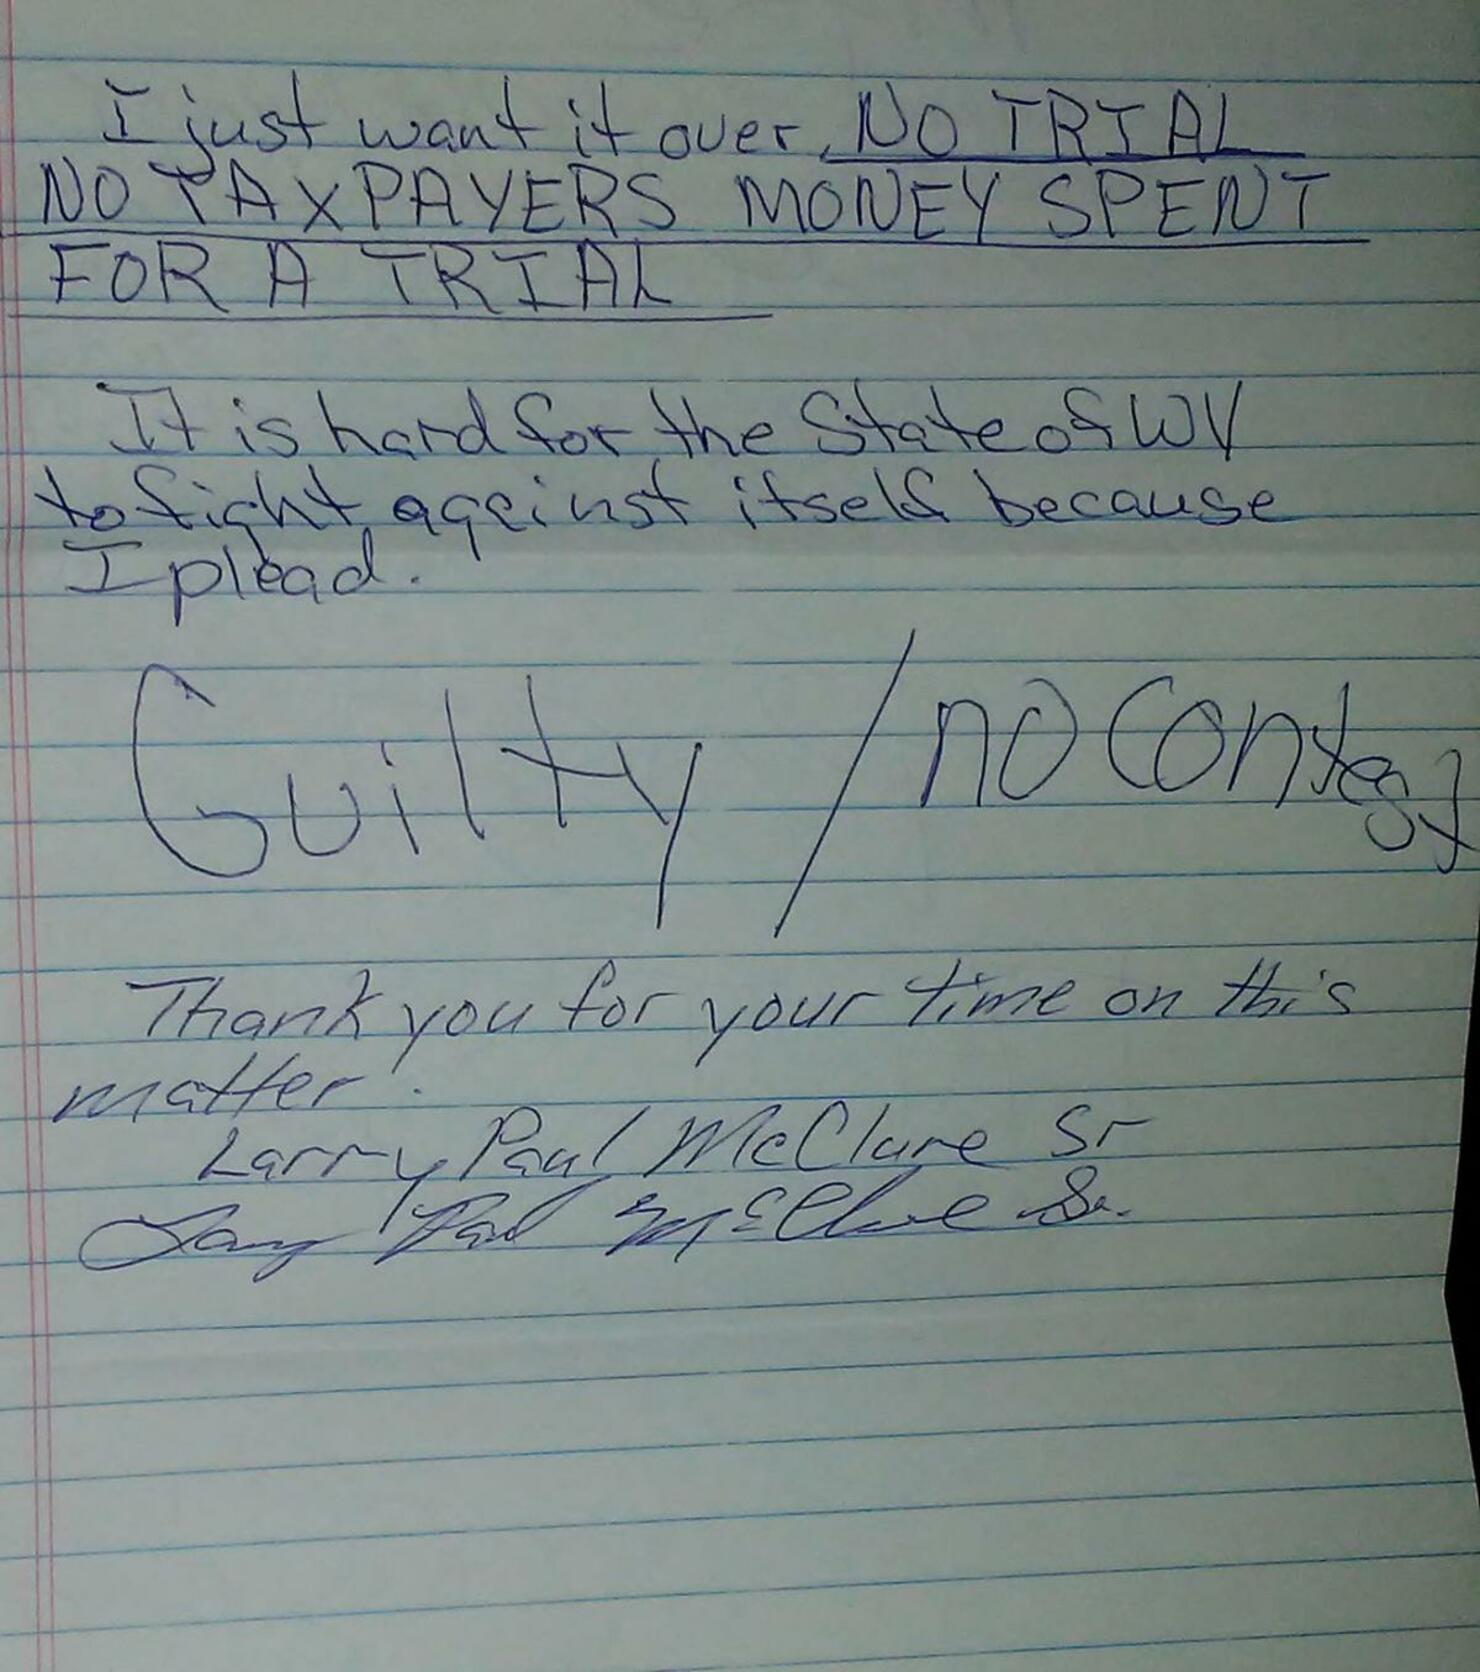 I just want it over. NO TRIAL
NO TAXPAYERS MONEY SPENT
FOR A TRIAL
It is hard for the State of WV
to fight against itself because
I plead.
Guilty / no contest
Thank you for your time on this
matter.
Larry Paul McClure Sr
Larry Paul McClure Sr.